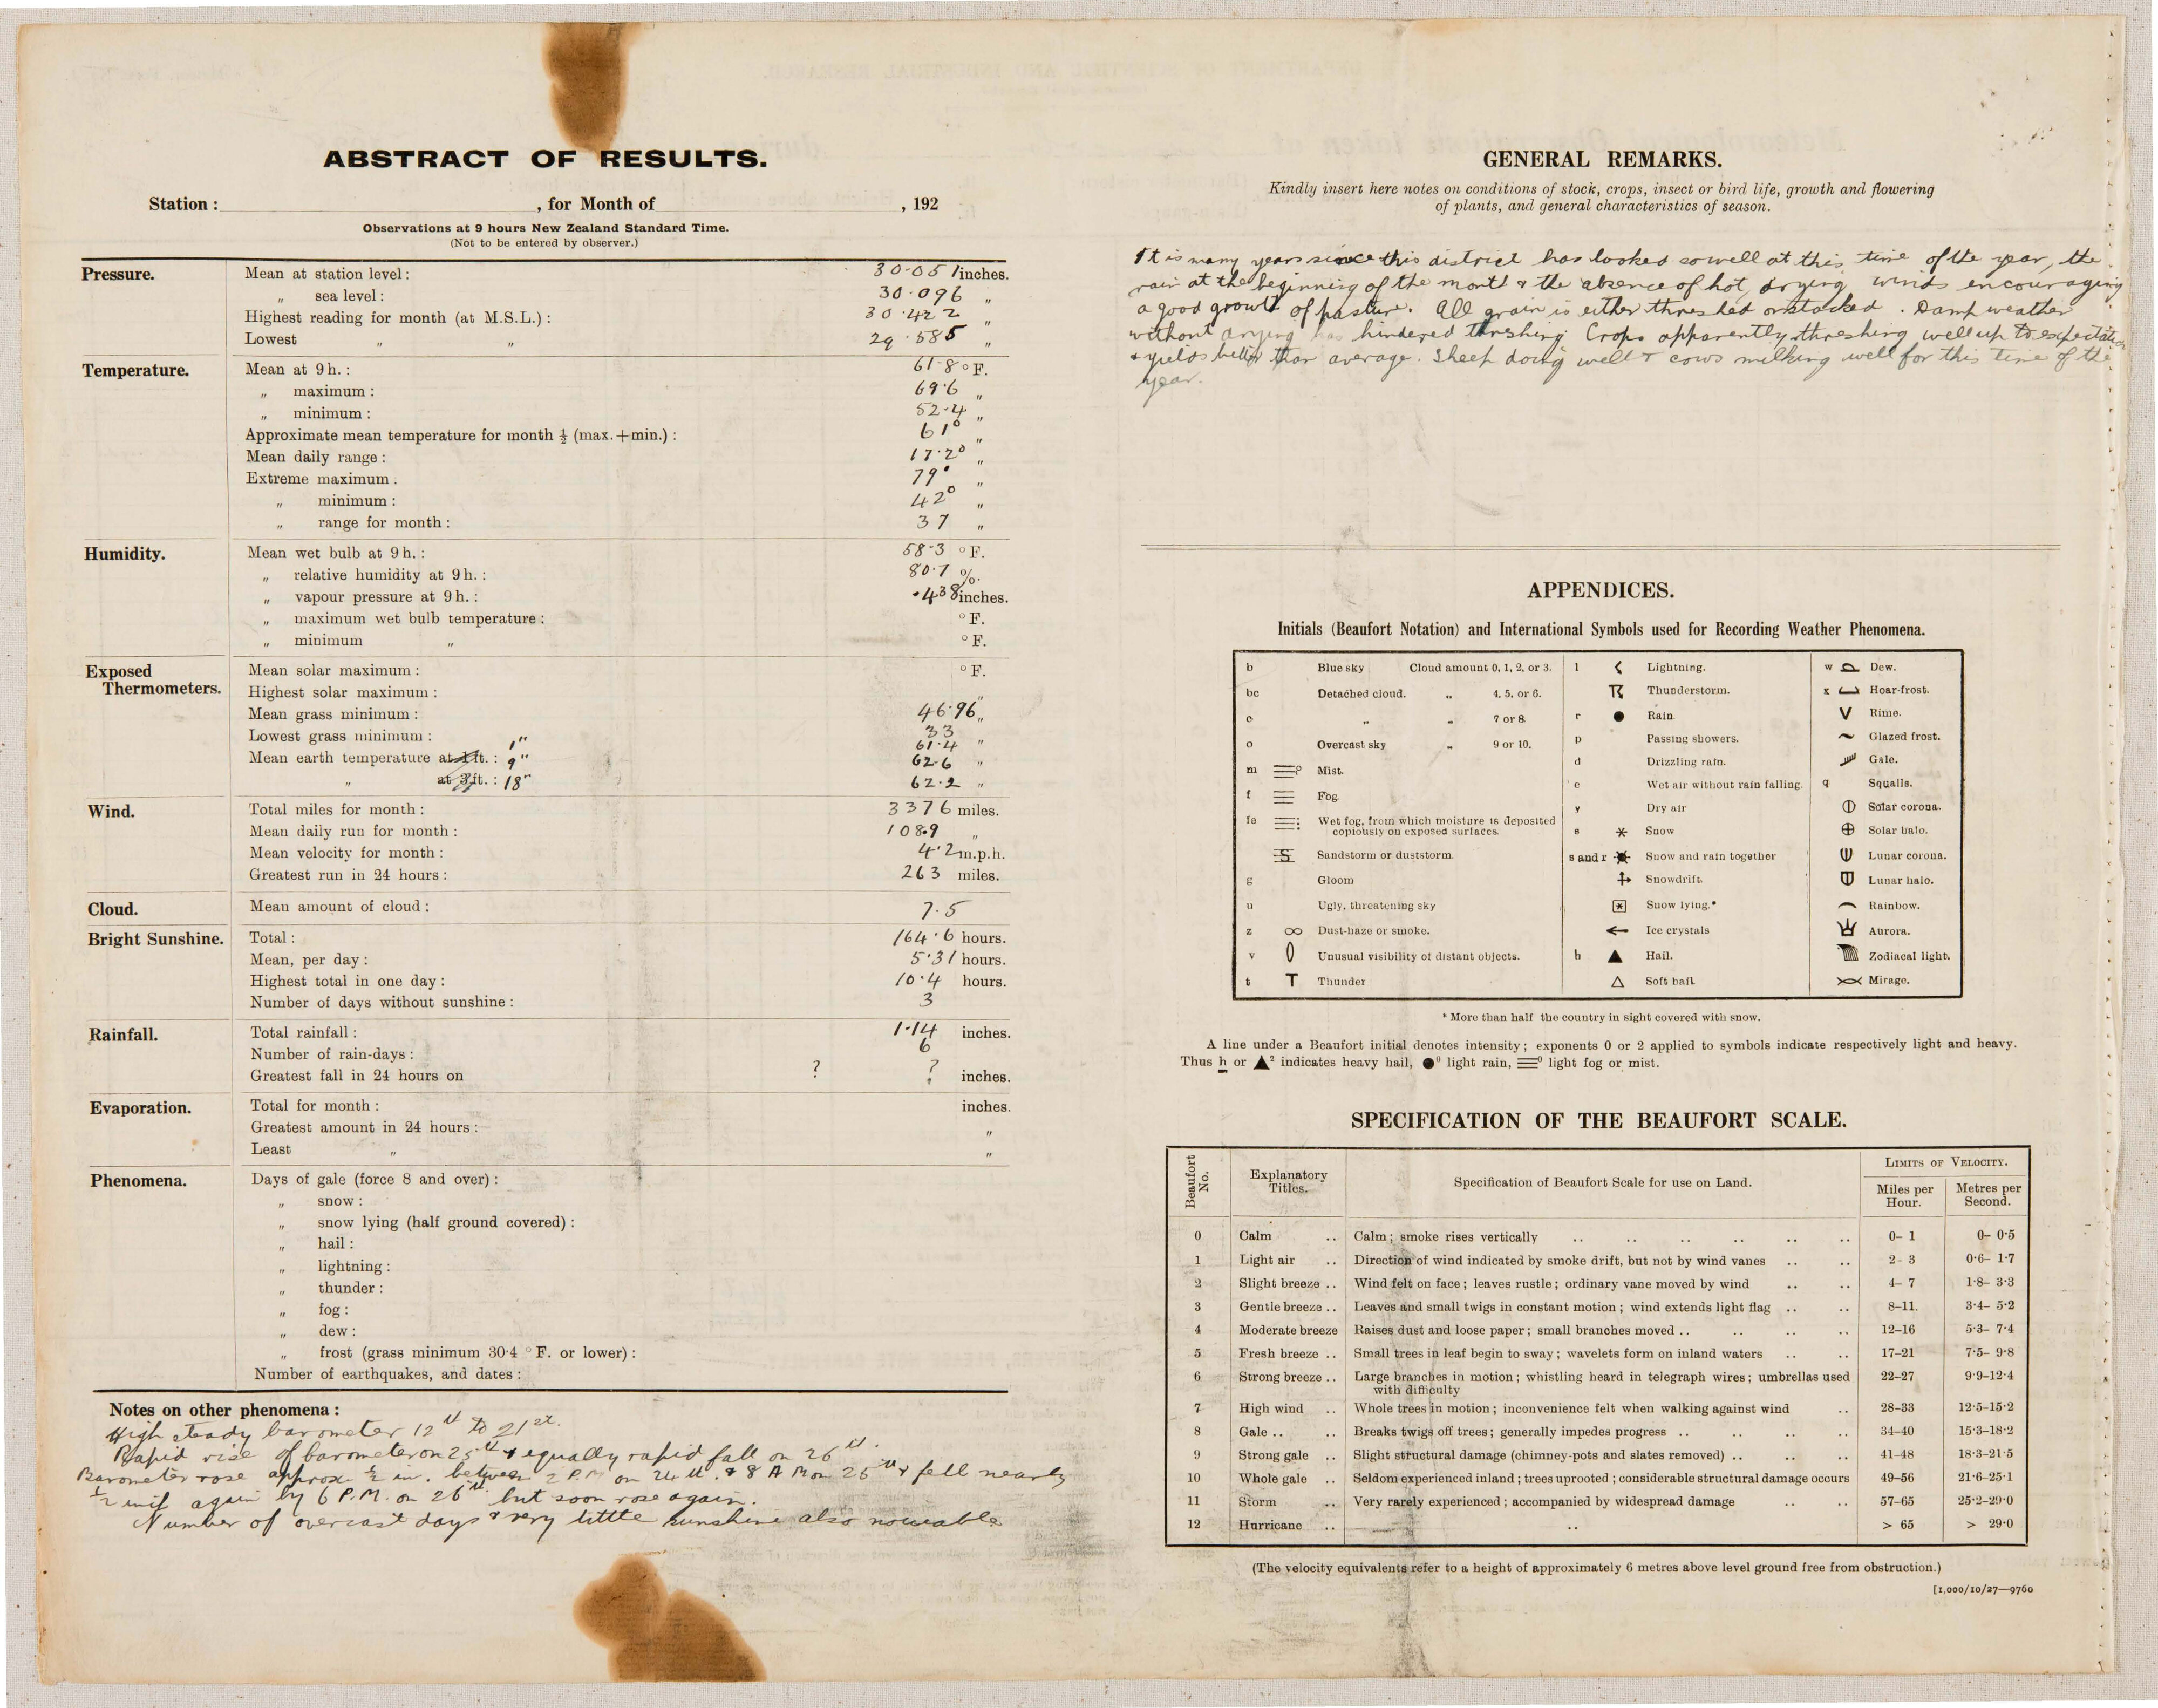 ABSTRACT OF RESULTS.
Station : , for Month of , 192
Observations at 9 hours New Zealand Standard Time.
(Not to be entered by observer.)
Pressure. Mean at station level : 30·051 inches.
„ sea level : 30·096 „
Highest reading for month (at M.S.L.) : 30·422 „
Lowest „ „ 29·585 „
Temperature. Mean at 9 h. : 61·8 °F.
„ maximum : 69·6 „
„ minimum : 52·4 „
Approximate mean temperature for month ½ (max. + min.) : 61° „
Mean daily range : 17·2° „
Extreme maximum : 79° „
„ minimum : 42° „
„ range for month : 37 „
Humidity. Mean wet bulb at 9 h. : 58·3 °F.
„ relative humidity at 9 h. : 80·7 %.
„ vapour pressure at 9 h. : ·438 inches.
„ maximum wet bulb temperature : °F.
„ minimum „ °F.
Exposed Thermometers. Mean solar maximum : °F.
Highest solar maximum : „
Mean grass minimum : 46·96 „
Lowest grass minimum : 33
1" 61·4 „
Mean earth temperature at 1 ft. : 9" 62·6 „
„ at 3 ft. : 18" 62·2 „
Wind. Total miles for month : 3376 miles.
Mean daily run for month : 108·9 „
Mean velocity for month : 4·2 m.p.h.
Greatest run in 24 hours : 263 miles.
Cloud. Mean amount of cloud : 7·5
Bright Sunshine. Total : 164·6 hours.
Mean, per day : 5·31 hours.
Highest total in one day : 10·4 hours.
Number of days without sunshine : 3
Rainfall. Total rainfall : 1·14 inches.
Number of rain-days : 6
Greatest fall in 24 hours on ? ? inches.
Evaporation. Total for month : inches.
Greatest amount in 24 hours : „
Least „ „
Phenomena. Days of gale (force 8 and over) :
„ snow :
„ snow lying (half ground covered) :
„ hail :
„ lightning :
„ thunder :
„ fog :
„ dew :
„ frost (grass minimum 30·4 °F. or lower) :
Number of earthquakes, and dates :
Notes on other phenomena :
High steady barometer 12th to 21st.
Rapid rise of barometer on 25th & equally rapid fall on 26th.
Barometer rose approx ½ in. between 2 P.M. on 24th. & 8 A M on 25th & fell nearly
½ inch again by 6 P.M. on 26th but soon rose again.
Number of overcast days & very little sunshine also noticeable
GENERAL REMARKS.
Kindly insert here notes on conditions of stock, crops, insect or bird life, growth and flowering
of plants, and general characteristics of season.
It is many years since this district has looked so well at this time of the year, the
rain at the beginning of the month & the absence of hot drying winds encouraging
a good growth of pasture. All grain is either threshed or stacked. Damp weather
without drying has hindered threshing Crops apparently threshing well up to expectation
& yields better than average. Sheep doing well & cows milking well for this time of the
year.
APPENDICES.
Initials (Beaufort Notation) and International Symbols used for Recording Weather Phenomena.
b Blue sky Cloud amount 0, 1, 2, or 3. l Lightning. w Dew.
bc Detached cloud. „ 4, 5, or 6. Thunderstorm. x Hoar-frost.
c „ „ 7 or 8. r Rain. V Rime.
o Overcast sky „ 9 or 10. p Passing showers. Glazed frost.
m Mist. d Drizzling rain. Gale.
f Fog. e Wet air without rain falling. q Squalls.
fe Wet fog, from which moisture is deposited y Dry air Solar corona.
copiously on exposed surfaces. s Snow Solar halo.
Sandstorm or duststorm. s and r Snow and rain together Lunar corona.
g Gloom Snowdrift. Lunar halo.
u Ugly, threatening sky Snow lying.* Rainbow.
z ∞ Dust-haze or smoke. Ice crystals Aurora.
v Unusual visibility of distant objects. h ▲ Hail. Zodiacal light.
t T Thunder △ Soft hail. Mirage.
* More than half the country in sight covered with snow.
A line under a Beaufort initial denotes intensity ; exponents 0 or 2 applied to symbols indicate respectively light and heavy.
Thus h or ▲² indicates heavy hail, ●⁰ light rain, ≡⁰ light fog or mist.
SPECIFICATION OF THE BEAUFORT SCALE.
Beaufort No. Explanatory Titles. Specification of Beaufort Scale for use on Land. LIMITS OF VELOCITY.
Miles per Hour. Metres per Second.
0 Calm .. Calm ; smoke rises vertically .. .. .. .. .. .. 0– 1 0– 0·5
1 Light air .. Direction of wind indicated by smoke drift, but not by wind vanes .. .. 2– 3 0·6– 1·7
2 Slight breeze .. Wind felt on face ; leaves rustle ; ordinary vane moved by wind .. .. 4– 7 1·8– 3·3
3 Gentle breeze .. Leaves and small twigs in constant motion ; wind extends light flag .. .. 8–11. 3·4– 5·2
4 Moderate breeze Raises dust and loose paper ; small branches moved .. .. .. .. 12–16 5·3– 7·4
5 Fresh breeze .. Small trees in leaf begin to sway ; wavelets form on inland waters .. .. 17–21 7·5– 9·8
6 Strong breeze .. Large branches in motion ; whistling heard in telegraph wires ; umbrellas used 22–27 9·9–12·4
with difficulty
7 High wind .. Whole trees in motion ; inconvenience felt when walking against wind .. 28–33 12·5–15·2
8 Gale .. .. Breaks twigs off trees ; generally impedes progress .. .. .. .. 34–40 15·3–18·2
9 Strong gale .. Slight structural damage (chimney-pots and slates removed) .. .. .. 41–48 18·3–21·5
10 Whole gale .. Seldom experienced inland ; trees uprooted ; considerable structural damage occurs 49–56 21·6–25·1
11 Storm .. Very rarely experienced ; accompanied by widespread damage .. .. 57–65 25·2–29·0
12 Hurricane .. .. > 65 > 29·0
(The velocity equivalents refer to a height of approximately 6 metres above level ground free from obstruction.)
[1,000/10/27—9760